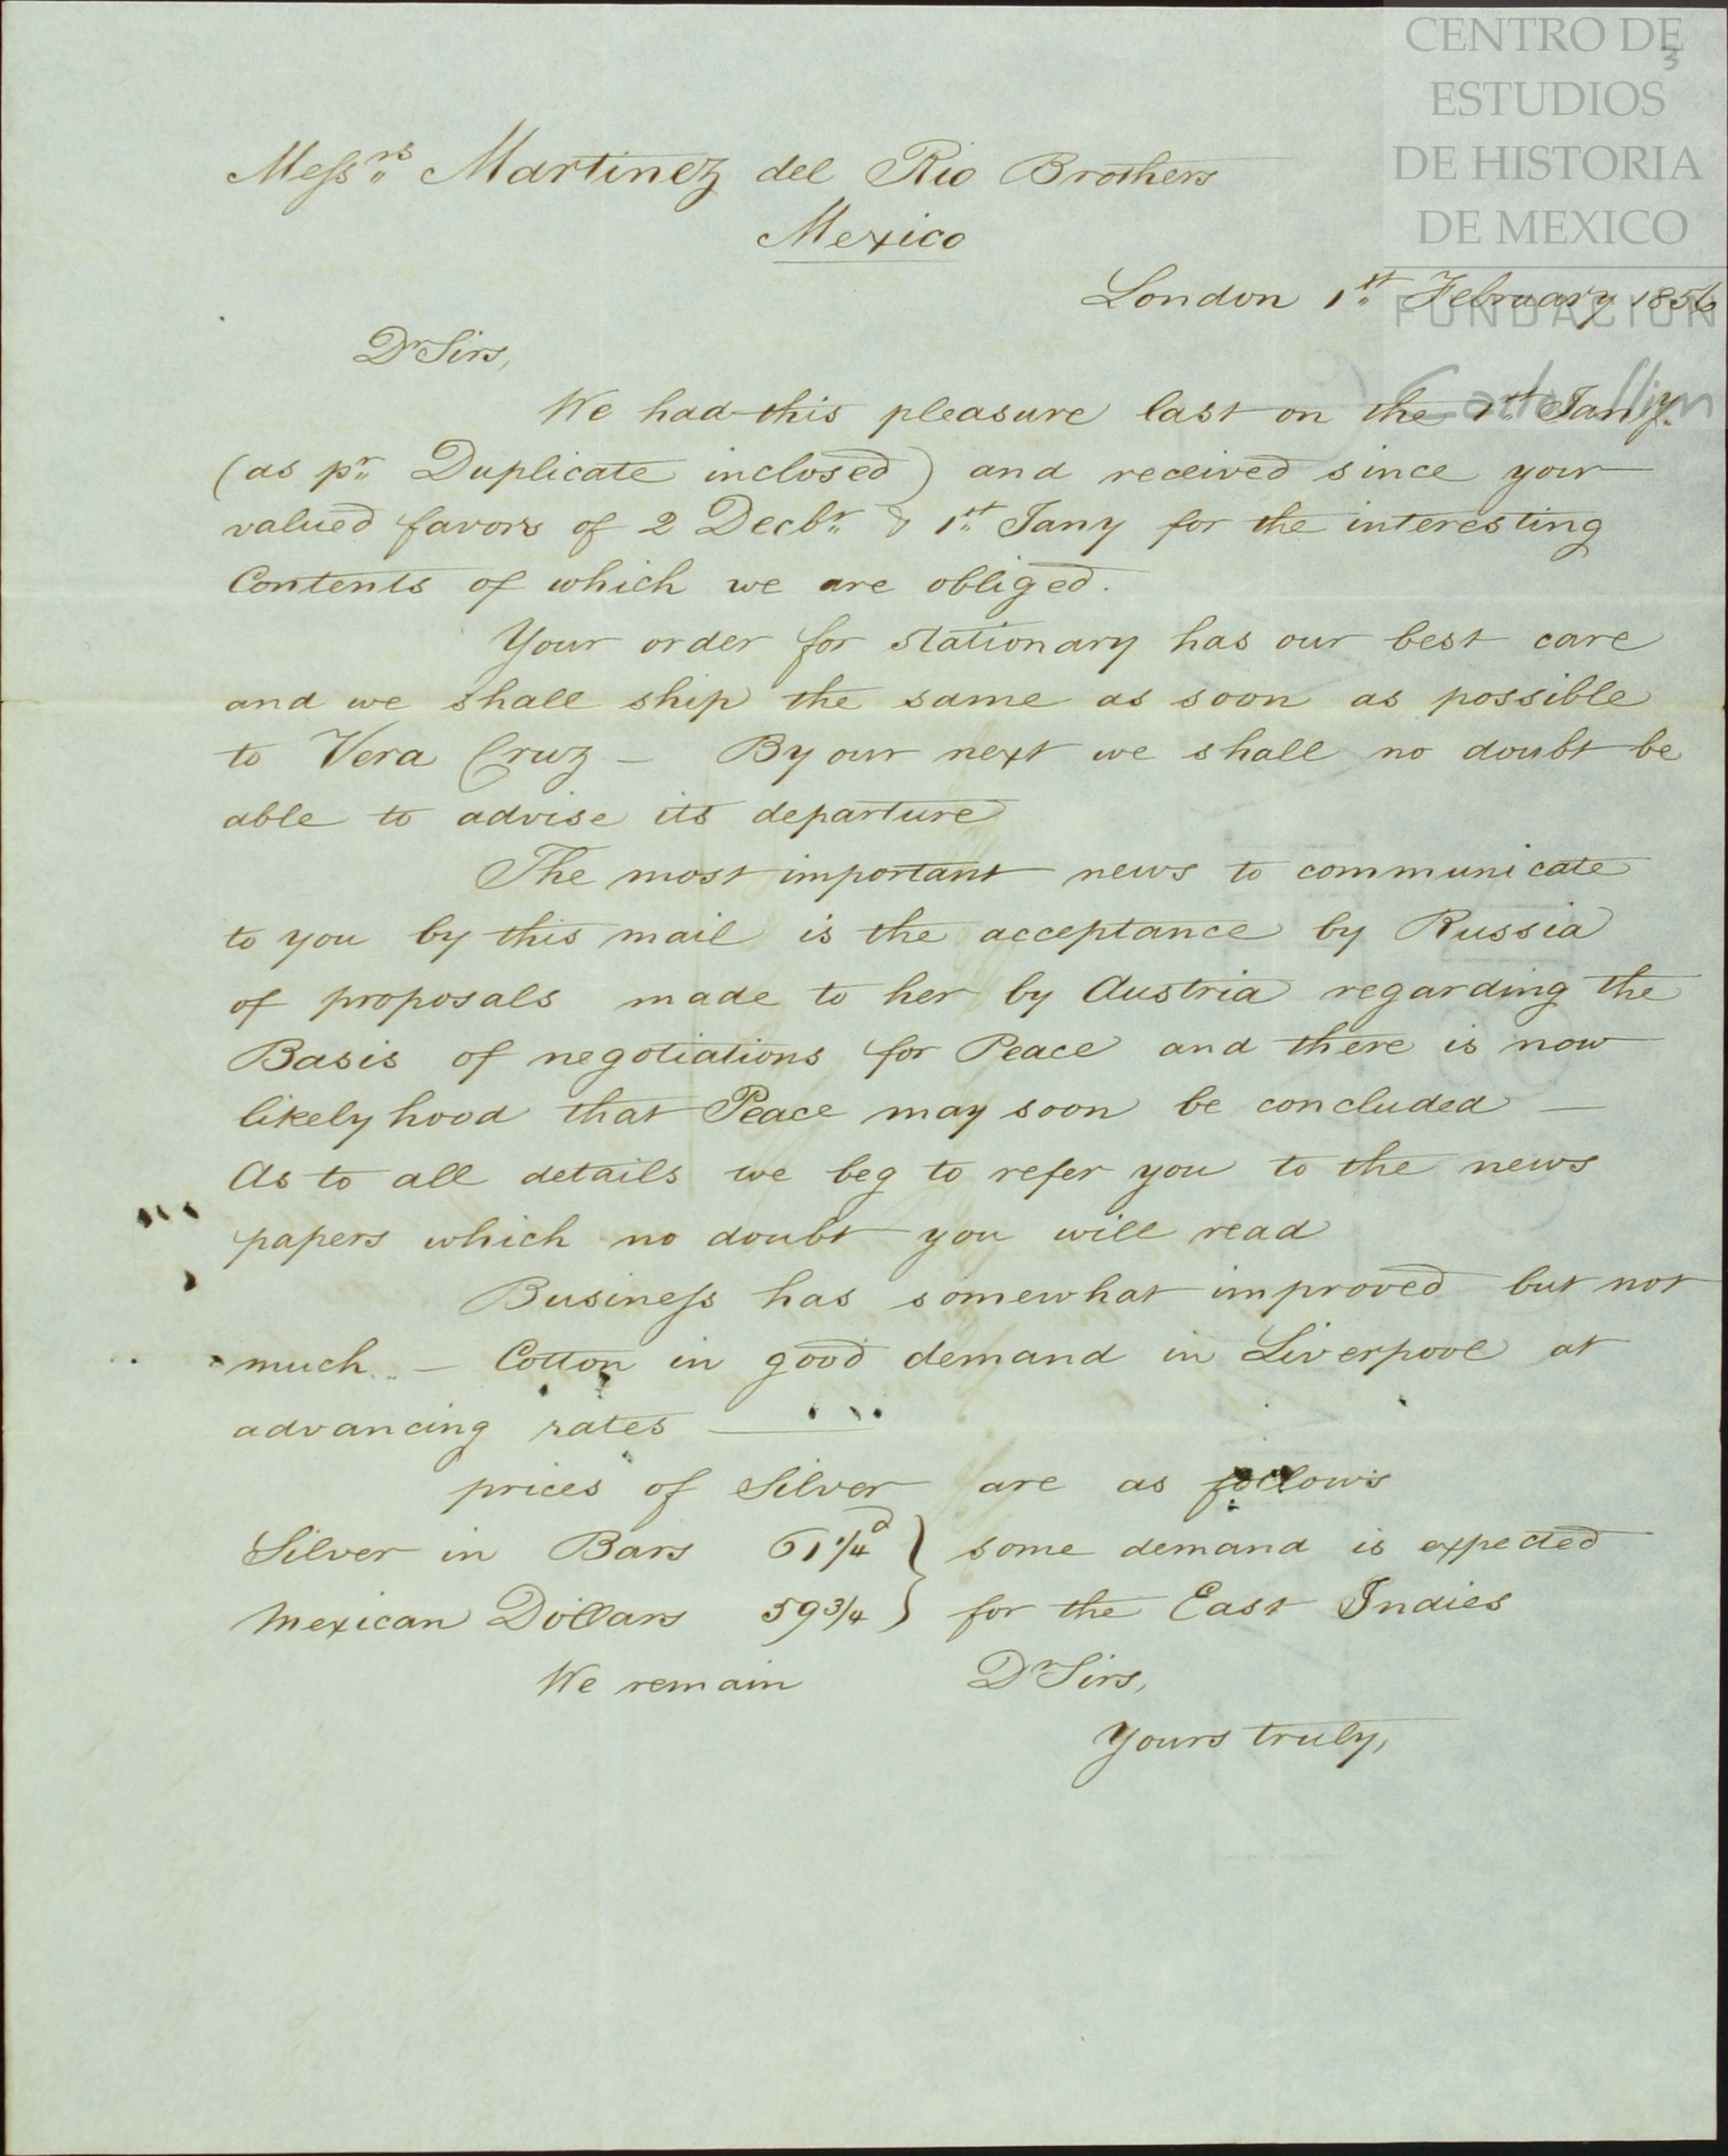 CENTRO DE
ESTUDIOS
DE HISTORIA
DE MEXICO
FUNDACION
Carlos Slim
3
Messrs Martinez del Rio Brothers
Mexico
London 1st February 1856
Dr Sirs,
We had this pleasure last on the 1st Jany.
(as pr Duplicate inclosed) and received since your
valued favors of 2 Decbr & 1st Jany for the interesting
Contents of which we are obliged.
Your order for stationary has our best care
and we shall ship the same as soon as possible
to Vera Cruz — By our next we shall no doubt be
able to advise its departure
The most important news to communicate
to you by this mail is the acceptance by Russia
of proposals made to her by Austria regarding the
Basis of negotiations for Peace and there is now
likelyhood that Peace may soon be concluded —
As to all details we beg to refer you to the news
papers which no doubt you will read
Business has somewhat improved but not
much. — Cotton in good demand in Liverpool at
advancing rates —
prices of Silver are as follows
Silver in Bars 61 1/4d } some demand is expected
Mexican Dollars 59 3/4 } for the East Indies
We remain Dr Sirs,
Yours truly,